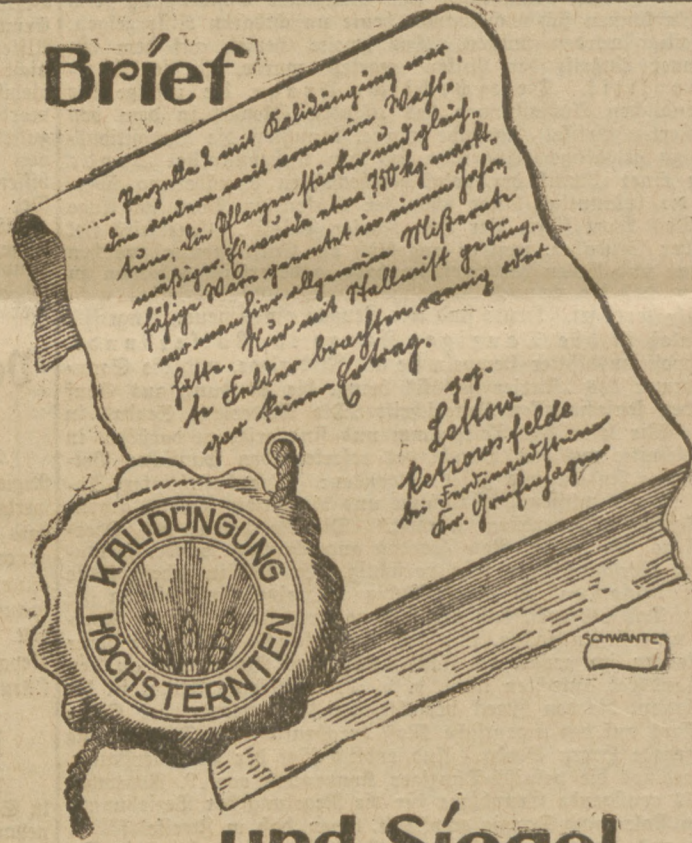 Brief
...... Parzelle 2 mit Kalidüngung war
den andern weit voran im Wachs-
tum, die Pflanzen stärker und gleich-
mäßiger. Es wurde etwa 750 kg markt-
fähige Ware geerntet in einem Jahre,
wo man hier allgemein Mißernte
hatte. Nur mit Stallmist gedüng-
te Felder brachten wenig oder
gar keinen Ertrag.
gez.
Lettow
Retzowsfelde
bei Ferdinandstein
Kr. Greifenhagen
KALIDÜNGUNG
HÖCHSTERNTEN
SCHWANTES
und Siegel